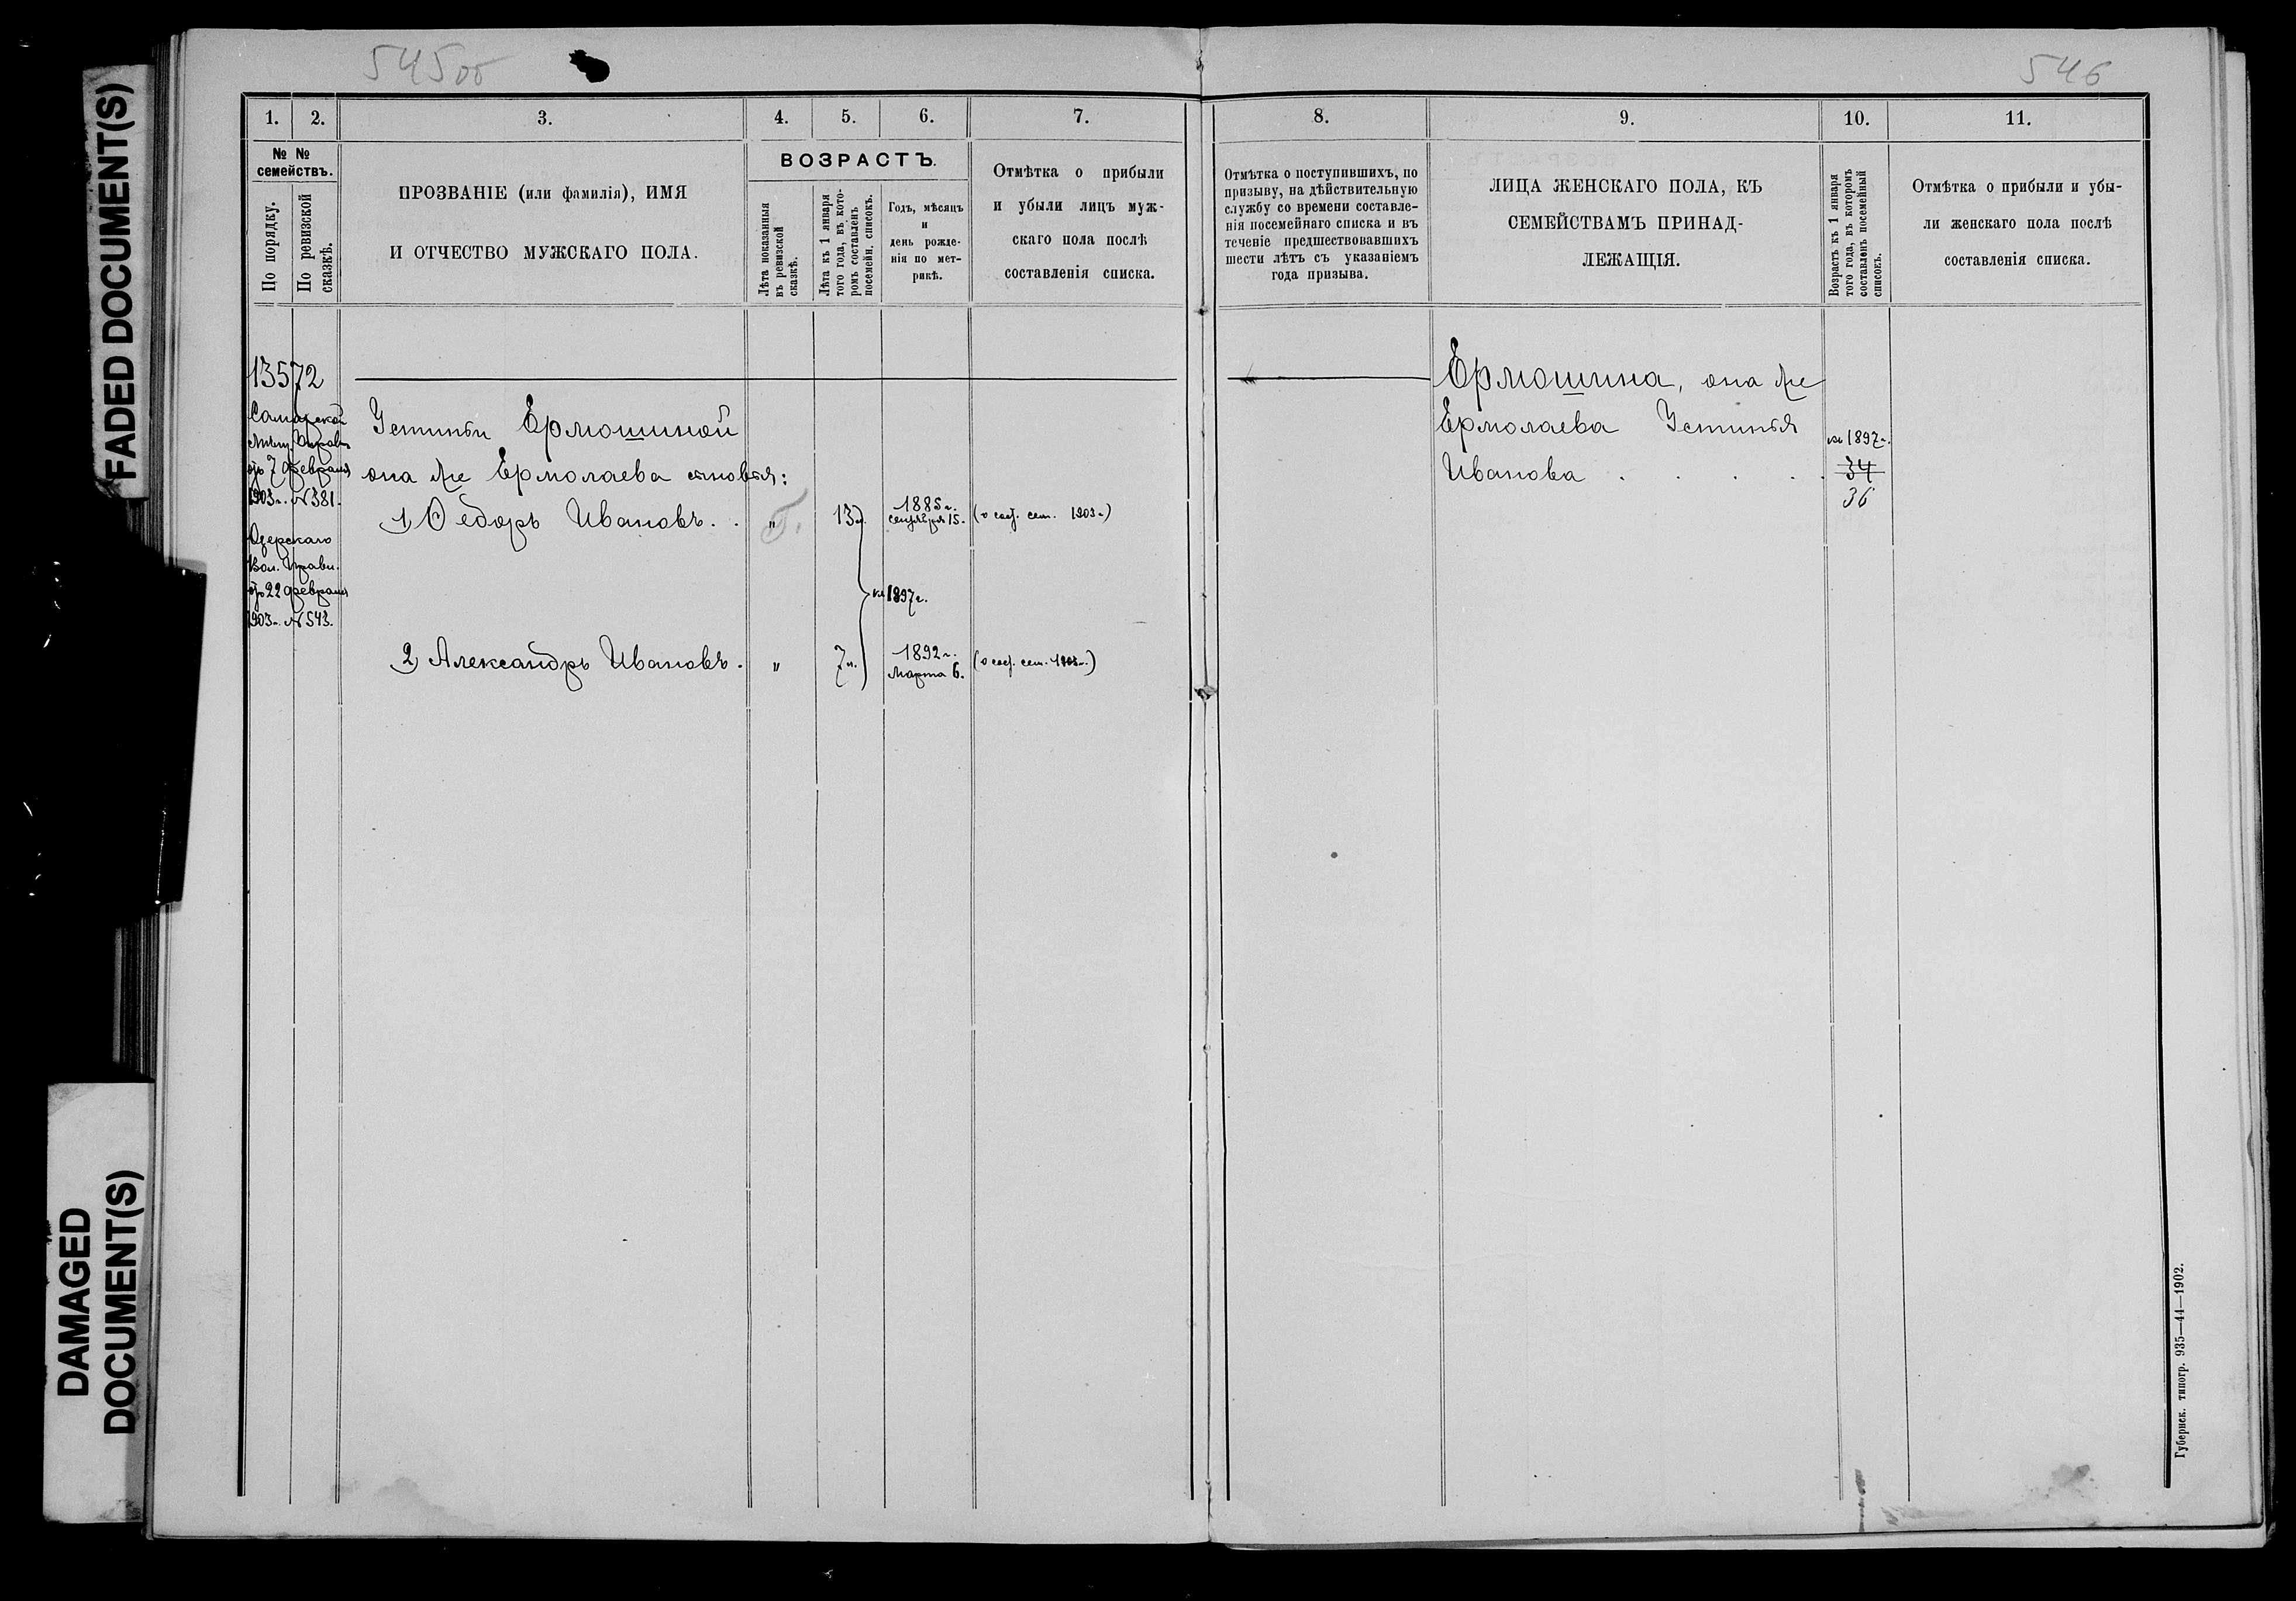 545 об
546
FADED DOCUMENT(S)
DAMAGED
DOCUMENT(S)
1.
2.
3.
4.
5.
6.
7.
8.
9.
10.
11.
№ №
семействъ.
По порядку.
По ревизской
сказкѣ.
ПРОЗВАНІЕ (или фамилія), ИМЯ
И ОТЧЕСТВО МУЖСКАГО ПОЛА.
ВОЗРАСТЪ.
Лѣта показанныя
въ ревизской
сказкѣ.
Лѣта къ 1 января
того года, въ кото-
ромъ составленъ
посемейн. списокъ.
Годъ, мѣсяцъ
и
день рожде-
нія по мет-
рикѣ.
Отмѣтка о прибыли
и убыли лицъ муж-
скаго пола послѣ
составленія списка.
Отмѣтка о поступившихъ, по
призыву, на дѣйствительную
службу со времени составле-
нія посемейнаго списка и въ
теченіе предшествовавшихъ
шести лѣтъ съ указаніемъ
года призыва.
ЛИЦА ЖЕНСКАГО ПОЛА, КЪ
СЕМЕЙСТВАМЪ ПРИНАД-
ЛЕЖАЩІЯ.
Возрастъ къ 1 января
того года, въ которомъ
составленъ посемейный
списокъ.
Отмѣтка о прибыли и убы-
ли женскаго пола послѣ
составленія списка.
13572
Самарской
Мѣщ. Управы
отъ 7 февраля
1903 г. № 381.
Озерскаго
Вол. Правл.
отъ 22 февраля
1903 г. № 543.
Устиньи Ермошиной
она же Ермолаева сыновья:
1) Ѳедоръ Ивановъ. . " 13 л. 1885 г.
сентября 15. ( 1903 г.)
къ 1897 г.
2) Александръ Ивановъ. " 7 л. 1892 г.
марта 6. ( 1903 г.)
Ермошина, она же
Ермолаева Устинья
Иванова . . . .
къ 1897 г.
34
36
Губернск. типогр. 935—44—1902.